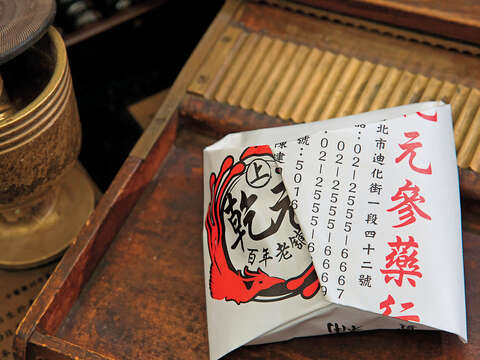 元參藥行
北市迪化街一段四十二號
02-2555-6667
02-2555-6669
02-2555-6
號：5016
陳建
上
乾元
百年老